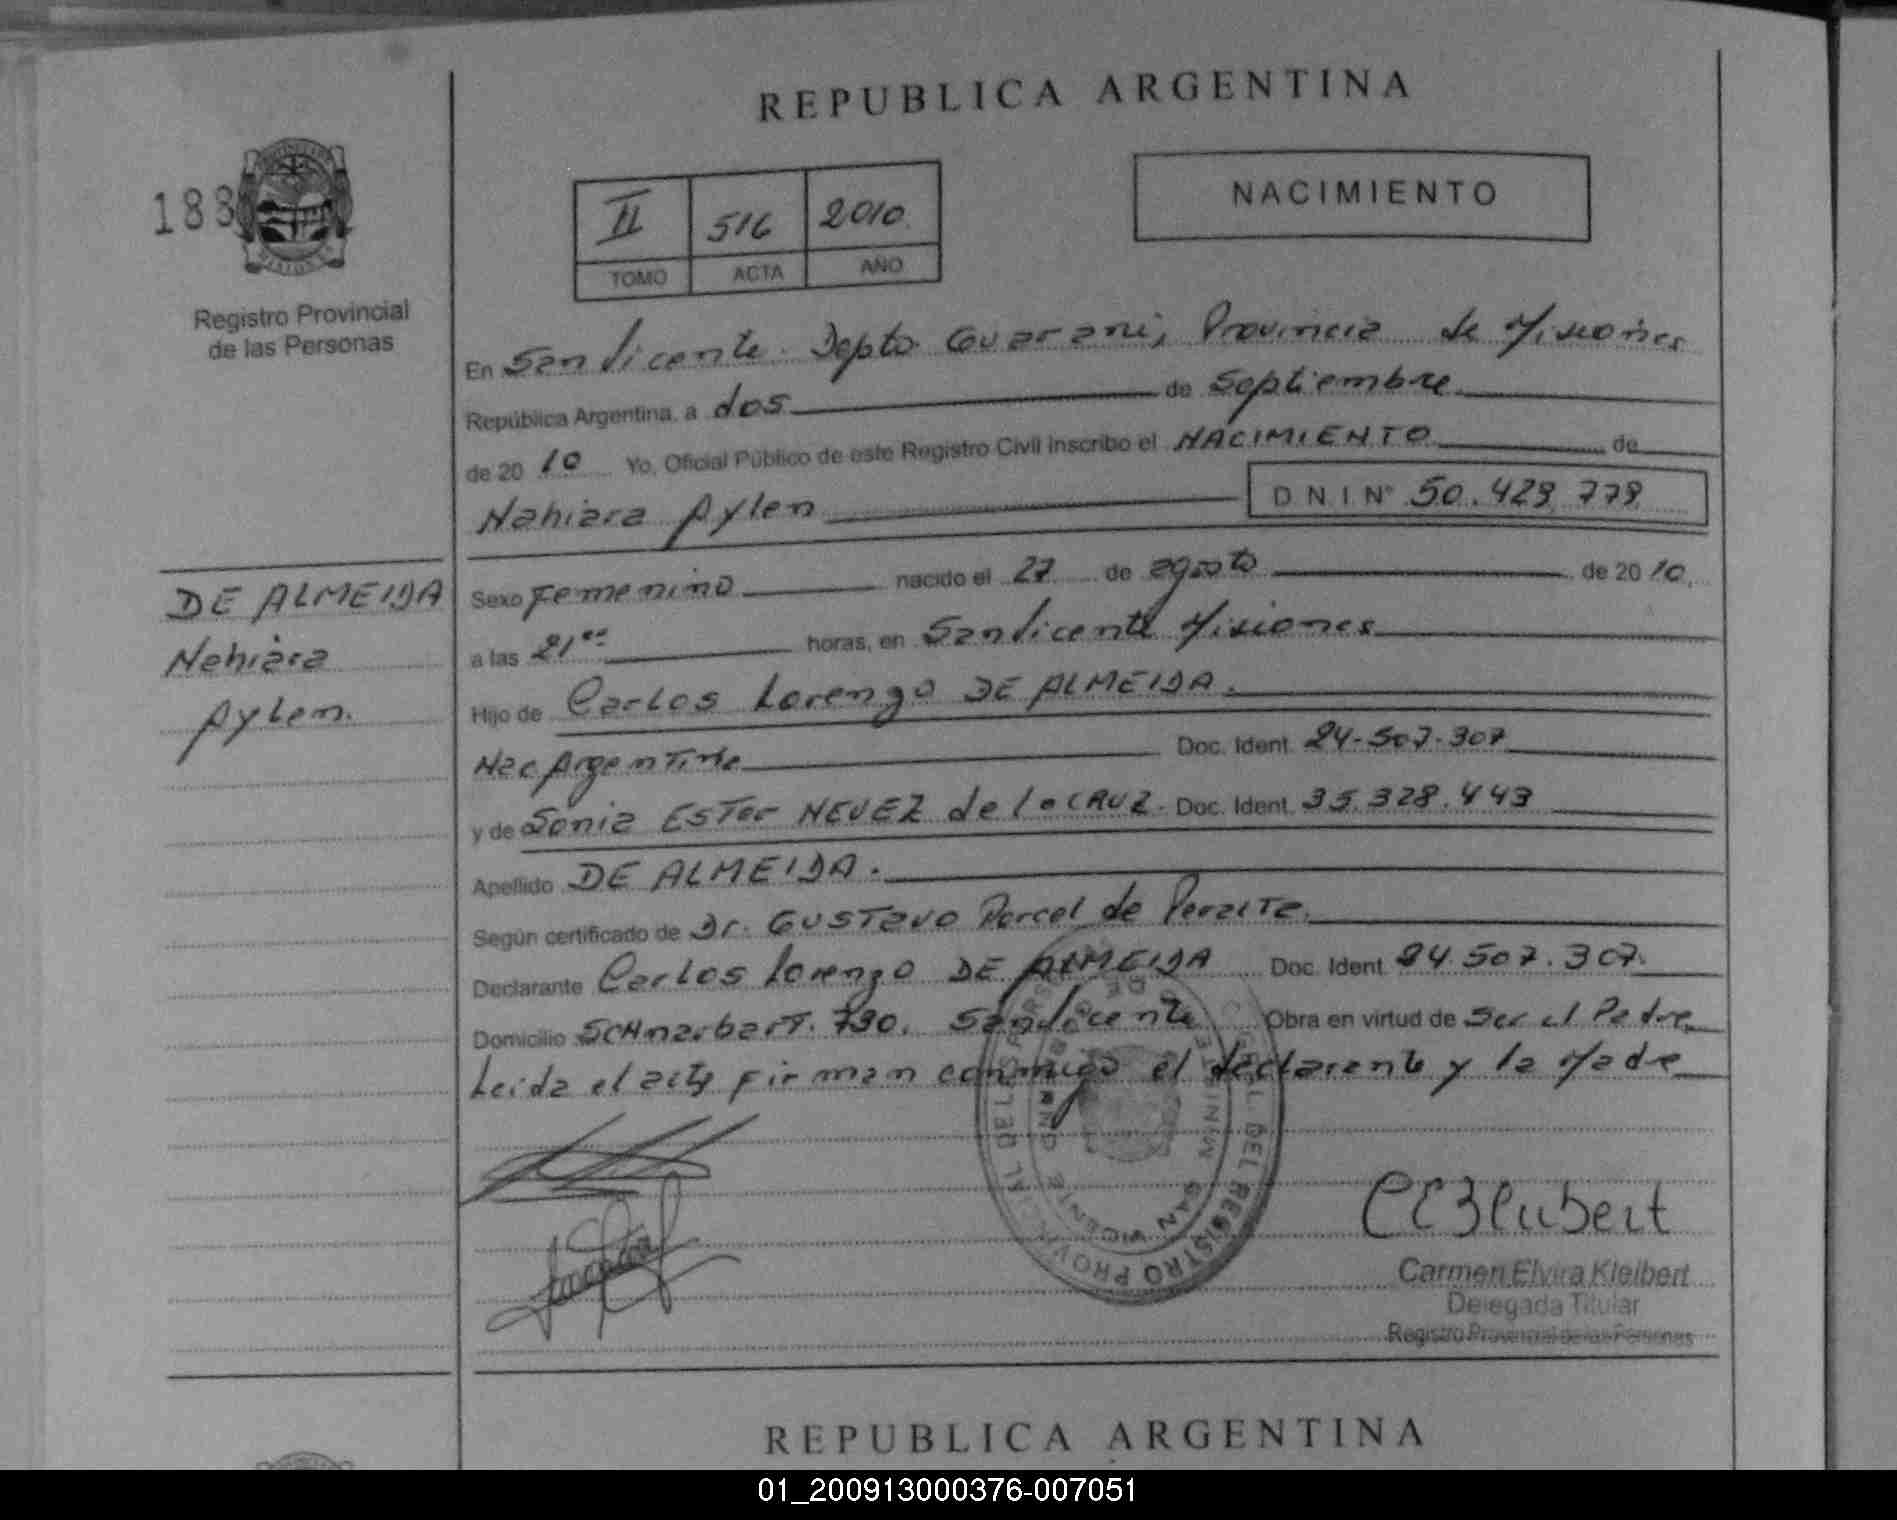 REPUBLICA ARGENTINA
188
Registro Provincial
de las Personas
II 516 2010
TOMO ACTA AÑO
NACIMIENTO
En San Vicente. Depto. Guarani, Provincia de Misiones
República Argentina, a dos de Septiembre
de 20 10 Yo, Oficial Público de este Registro Civil inscribo el NACIMIENTO de
Nahiara Aylen D.N.I. N° 50.429.779
DE ALMEIDA
Nahiara
Aylen.
Sexo Femenino nacido el 27 de agosto de 20 10.
a las 21°° horas, en San Vicente Misiones
Hijo de Carlos Lorenzo DE ALMEIDA.
Nac Argentina Doc. Ident. 24-507-307
y de Sonia ESTer NEVEZ de la CRUZ. Doc. Ident. 35.328.443
Apellido DE ALMEIDA.
Según certificado de Dr. GUSTavo Porcel de PeralTa.
Declarante Carlos Lorenzo DE ALMEIDA Doc. Ident. 24.507.307.
Domicilio 790. San Vicente Obra en virtud de Ser el Padre
Leida el acta firman conmigo el declarante y la Madre
REGISTRO PROVINCIAL DE LAS PERSONAS
SAN VICENTE
Carmen Elvira Kleibert
Delegada Titular
Registro Provincial de las Personas
REPUBLICA ARGENTINA
01_200913000376-007051